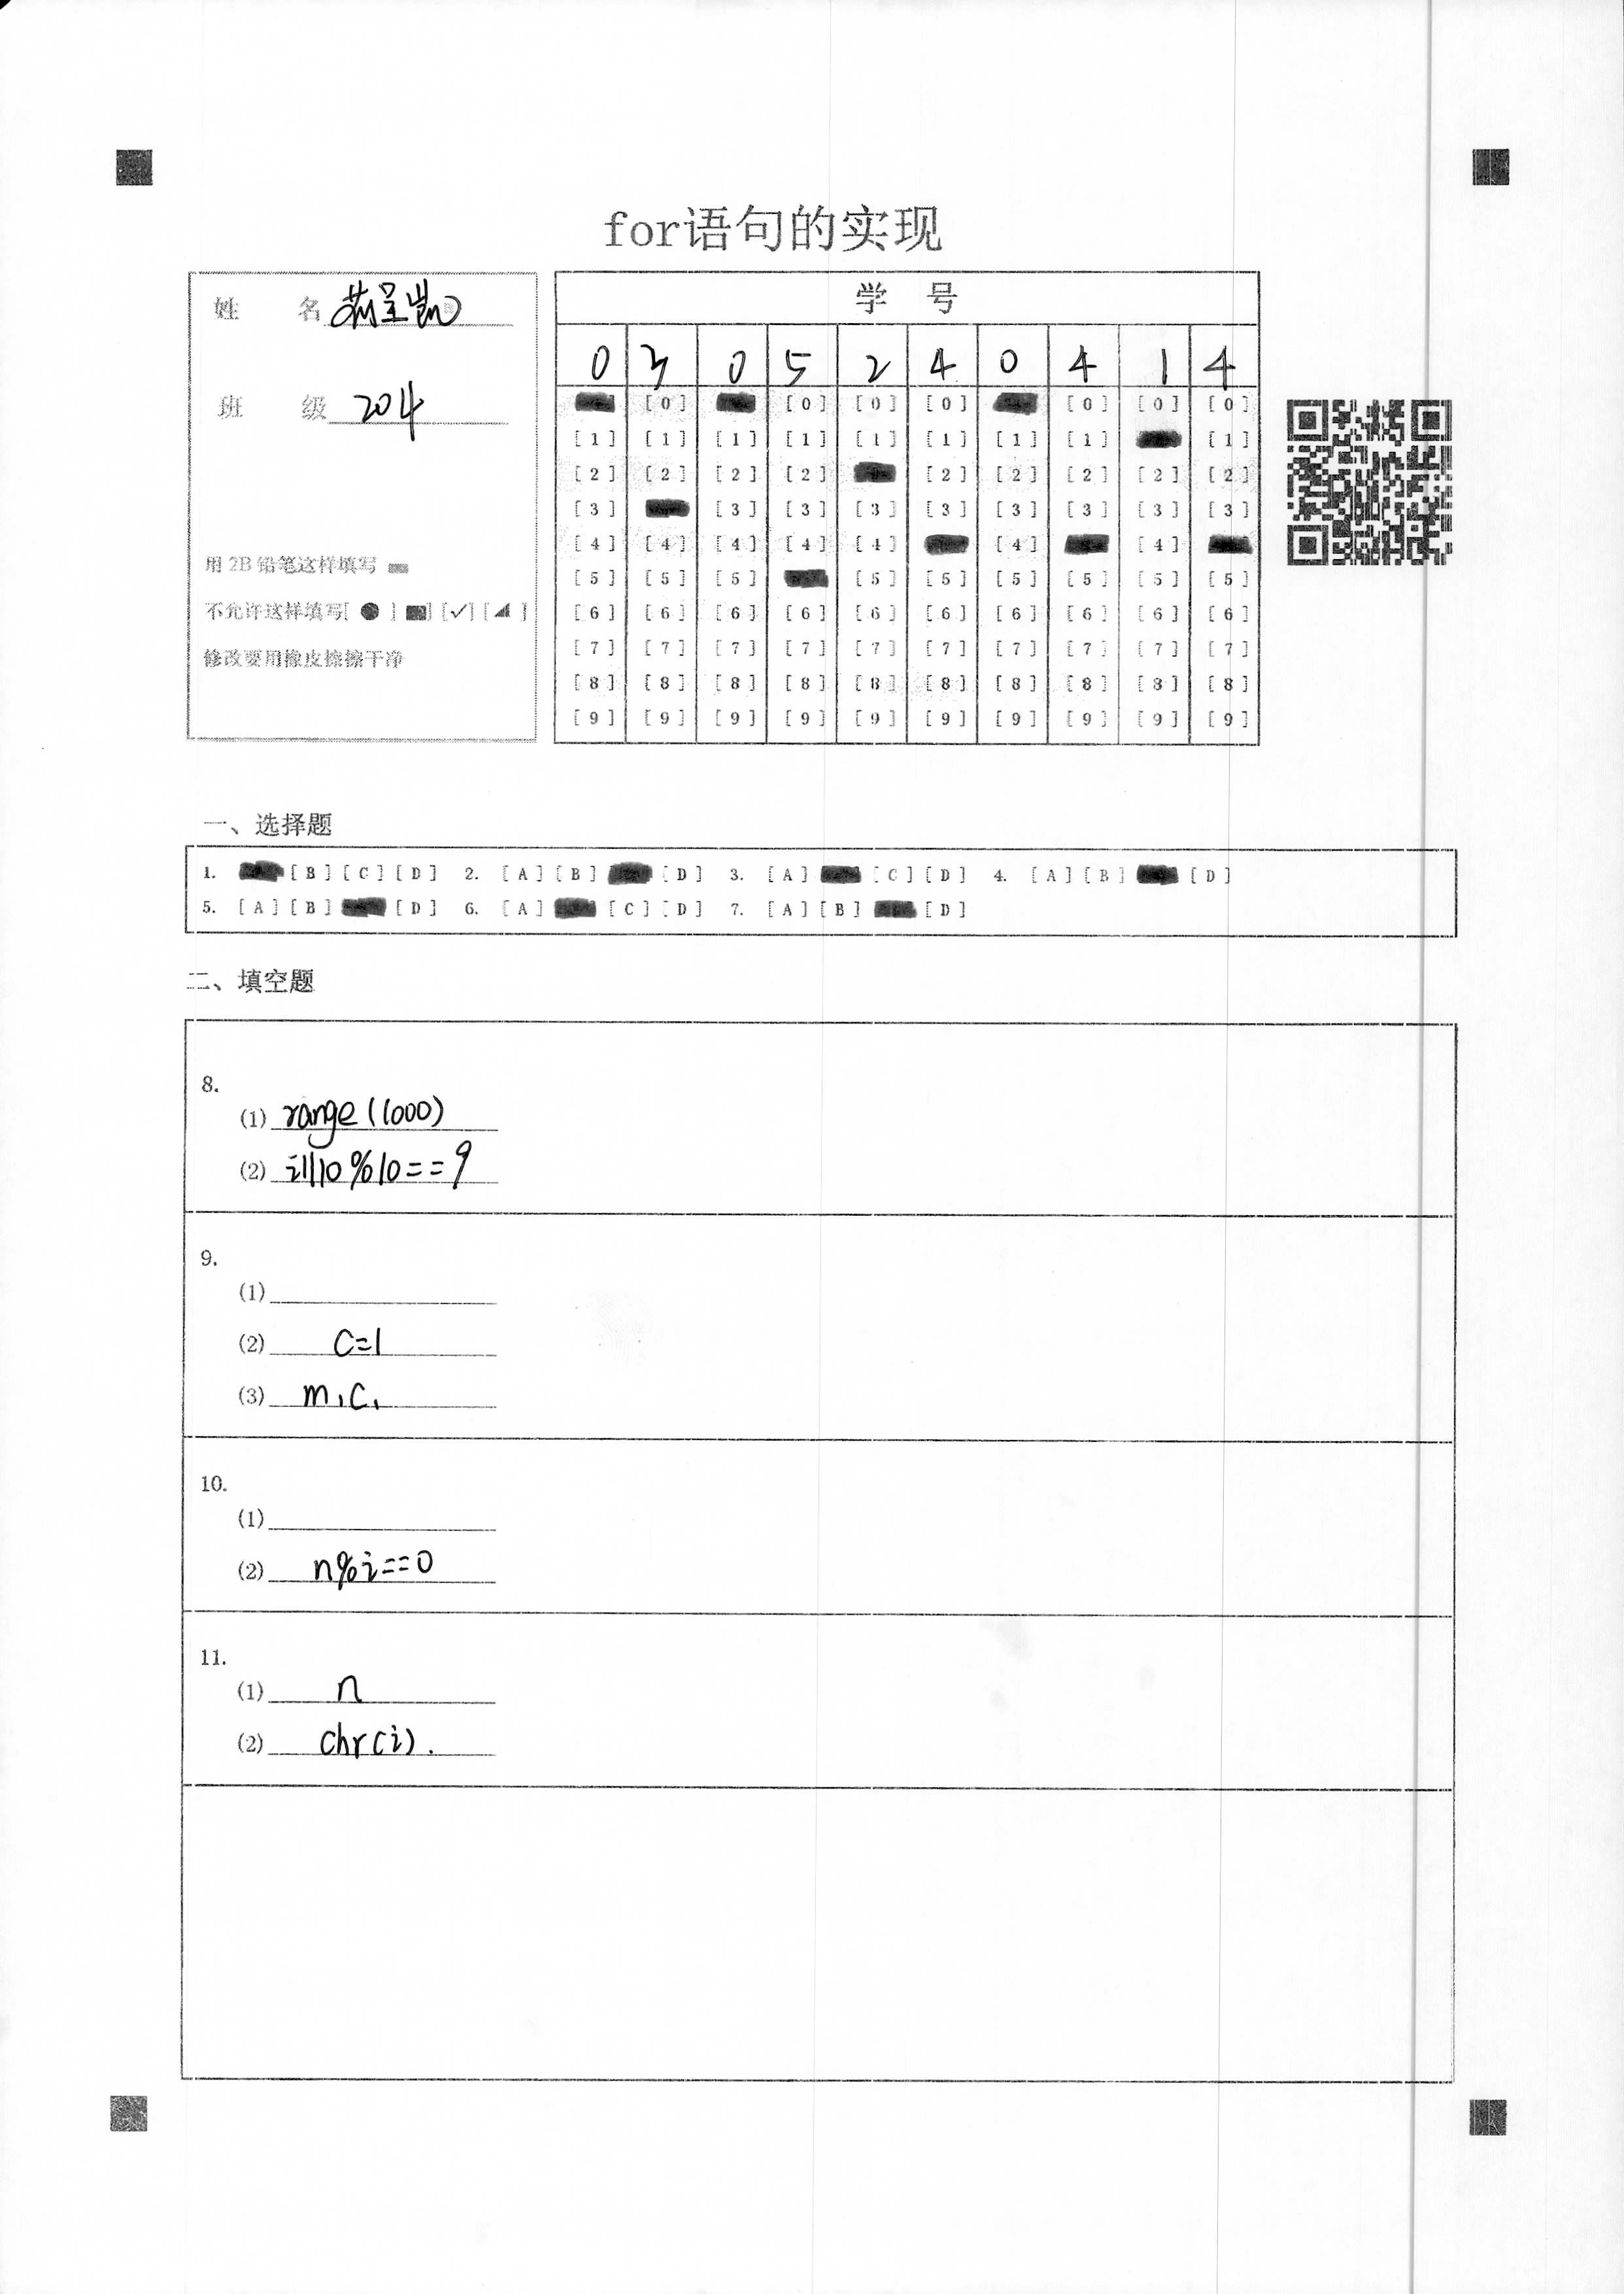 for语句的实现
姓 名 呈凯
班 级 204
用 2B 铅笔这样填写
不允许这样填写[ ● ] [✓] [ ]
修改要用橡皮擦擦干净
学 号
0 3 0 5 2 4 0 4 1 4
[0] [0] [0] [0] [0] [0] [0]
[1] [1] [1] [1] [1] [1] [1] [1] [1]
[2] [2] [2] [2] [2] [2] [2] [2] [2]
[3] [3] [3] [3] [3] [3] [3] [3] [3]
[4] [4] [4] [4] [4] [4] [4]
[5] [5] [5] [5] [5] [5] [5] [5] [5]
[6] [6] [6] [6] [6] [6] [6] [6] [6] [6]
[7] [7] [7] [7] [7] [7] [7] [7] [7] [7]
[8] [8] [8] [8] [8] [8] [8] [8] [8] [8]
[9] [9] [9] [9] [9] [9] [9] [9] [9] [9]
一、选择题
1. [B] [C] [D] 2. [A] [B] [D] 3. [A] [C] [D] 4. [A] [B] [D]
5. [A] [B] [D] 6. [A] [C] [D] 7. [A] [B] [D]
二、填空题
8.
(1) range(1000)
(2) i//10%10==9
9.
(1)
(2) c=1
(3) m,c,
10.
(1)
(2) n%i==0
11.
(1) n
(2) chr(i).